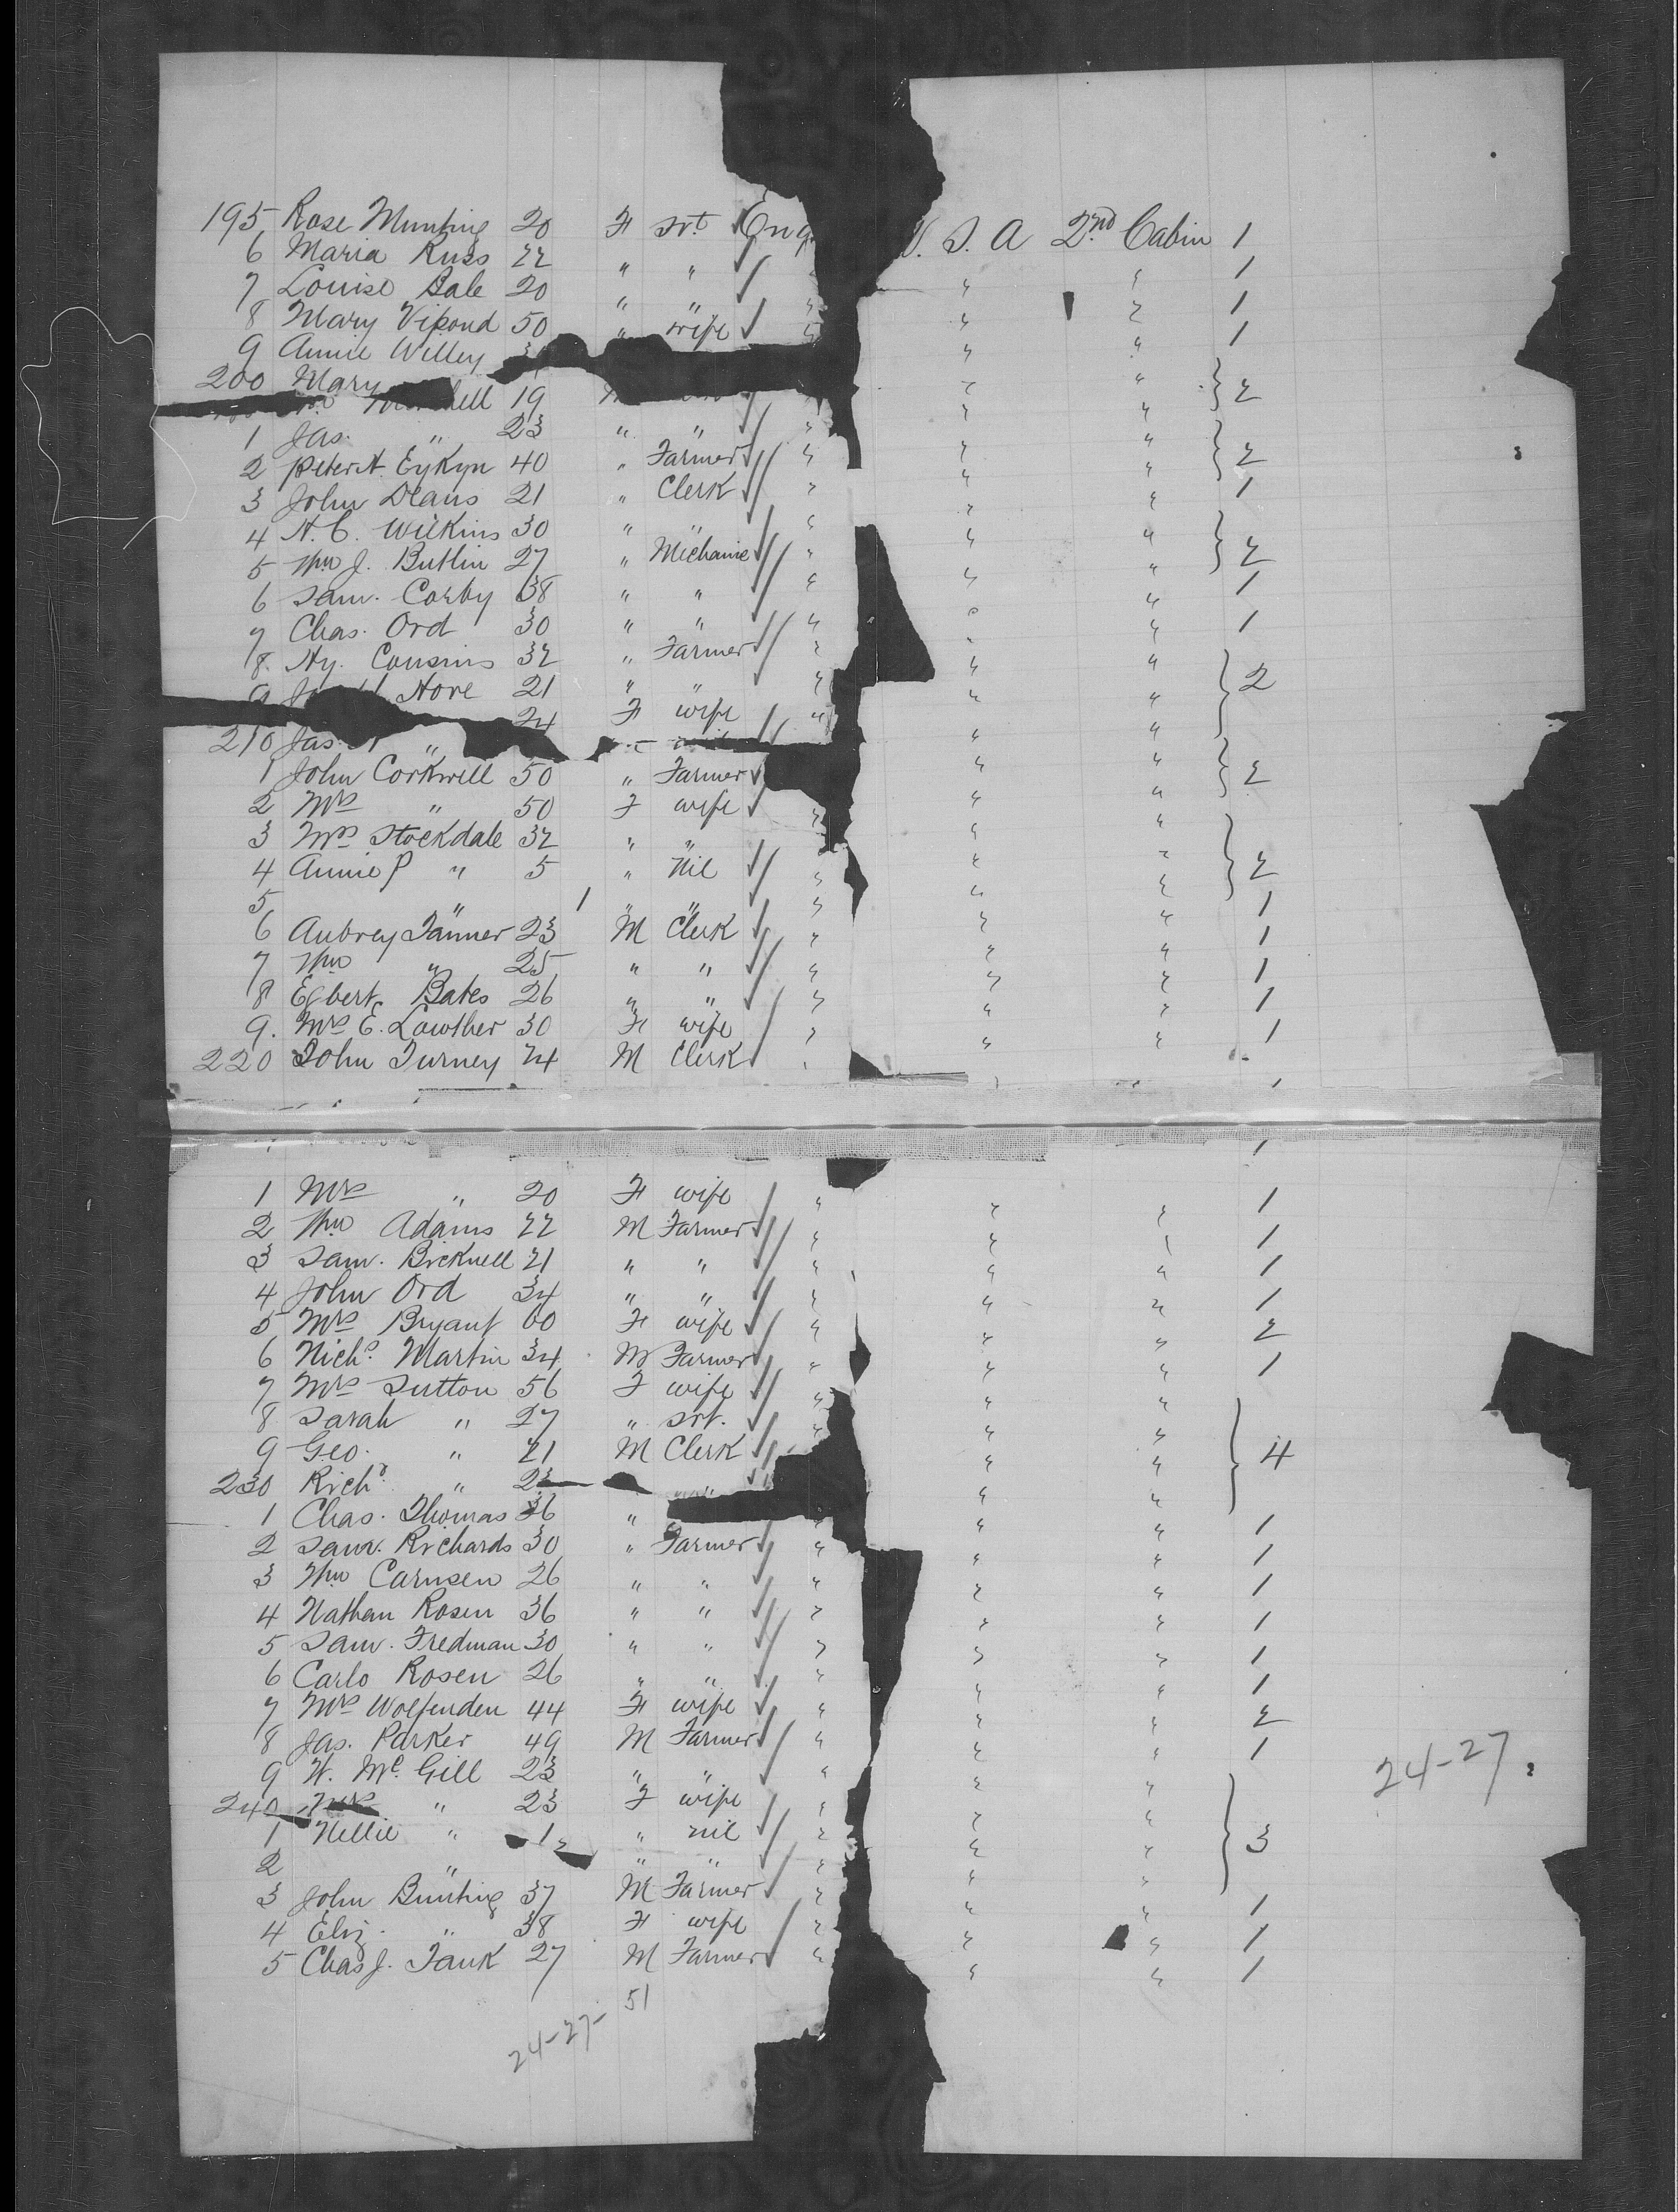 195 Rose Munting 20 F svt. Eng. U. S. A 2nd Cabin 1
6 Maria Russ 22 " " " " " 1
7 Louise Bale 20 " " " " " 1
8 Mary Vipond 50 " wife " " " 1
9 Annie Willey
200 Mary " " } 2
19
1 Jas. " 23 " " " " "
2 Peter A. Eykyn 40 " Farmer " " " } 2
3 John Deans 21 " Clerk " " " 1
4 H. C. Wilkins 30 " " " " "
5 Wm J. Butlin 27 " Mechanic " " " } 2
6 Sam. Corby 38 " " " " " 1
7 Chas. Ord 30 " " " " " 1
8. Hy. Cousins 32 " Farmer " " "
9 Hore 21 " " " " " } 2
24 F wife " " "
210 Jas. " " "
1 John Corkwell 50 " Farmer " " } 2
2 Mrs " 50 F wife " " "
3 Mrs Stockdale 32 " " " " "
4 Annie P " 5 " Nil " " " } 2
5 " 1 " " " " " 1
6 Aubrey Tanner 23 M Clerk " " " 1
7 Wm " 25 " " " " " 1
8 Egbert Bates 26 " " " " " 1
9. Mrs E. Lowther 30 F wife " " " 1
220 John Turney 24 M Clerk
1 Mrs " 20 F wife " " " 1
2 Wm Adams 22 M Farmer " " " 1
3 Sam. Bicknell 21 " " " " " 1
4 John Ord 34 " " " " " 1
5 Mrs Bryant 60 F wife " " " 2
6 Nichs. Martin 34 M Farmer " " " 1
7 Mrs Sutton 56 F wife " " "
8 Sarah " 27 " svt. " " "
9 Geo. " 21 M Clerk " " } 4
230 Richd. " 23 " " "
1 Chas. Thomas 36 " " " 1
2 Sam. Richards 30 " Farmer " " " 1
3 Wm Carnsen 26 " " " " " 1
4 Nathan Rosen 36 " " " " " 1
5 Sam. Fredman 30 " " " " " 1
6 Carlo Rosen 26 " " " " " 1
7 Mrs Wolfenden 44 F wife " " " 2
8 Jas. Parker 49 M Farmer " " " 1
9 W. Mc. Gill 23 " " " " "
24-27
240 Mrs " 23 F wife " " "
1 Nellie " " nil " " " } 3
2 " " " " " "
3 John Bunting 37 M Farmer " " " 1
4 Eliz. " 38 F wife " " " 1
5 Chas J. Tank 27 M Farmer " " " 1
51
24-27-